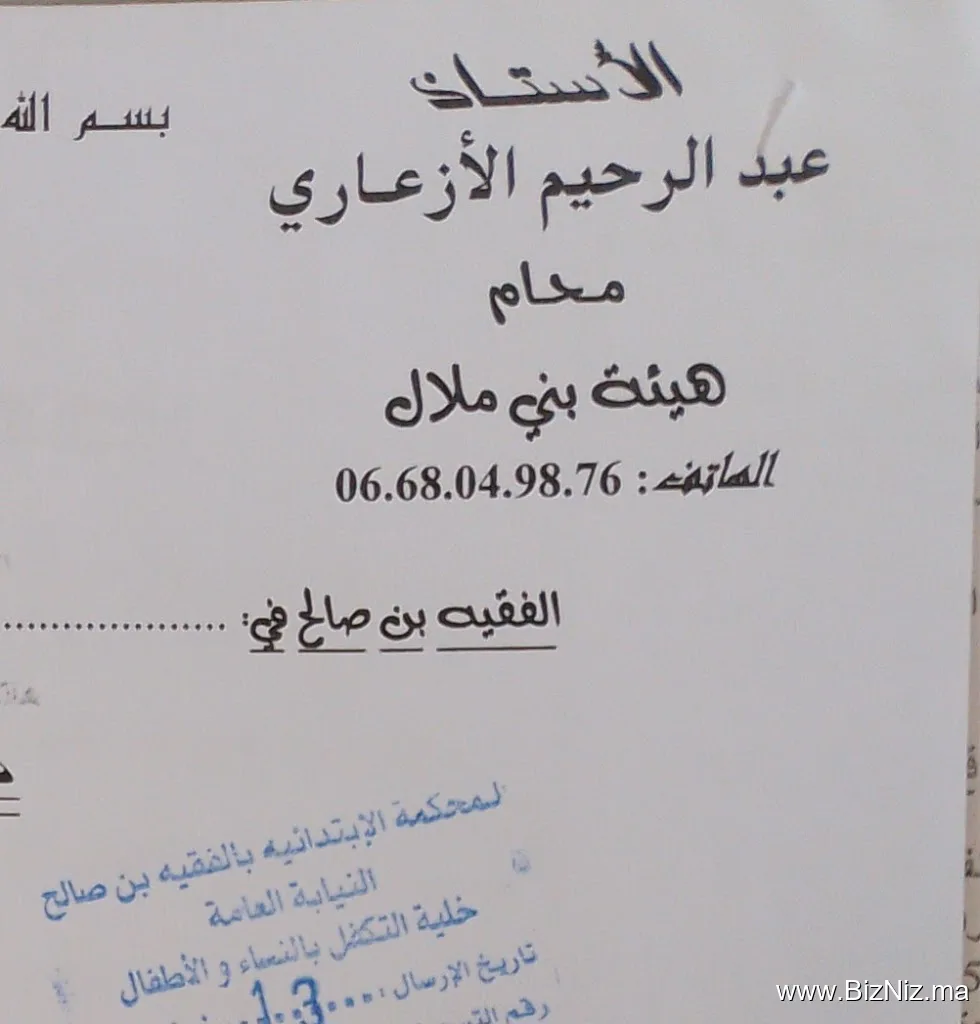 الأستاذ
بسم الله
عبد الرحيم الأزعاري
محام
هيئة بني ملال
الهاتف : 06.68.04.98.76
الفقيه بن صالح في: ....................
لمحكمة الإبتدائيه بالفقيه بن صالح
النيابة العامة
خلية التكفل بالنساء و الأطفال
تاريخ الإرسال :
رقم
www.BizNiz.ma